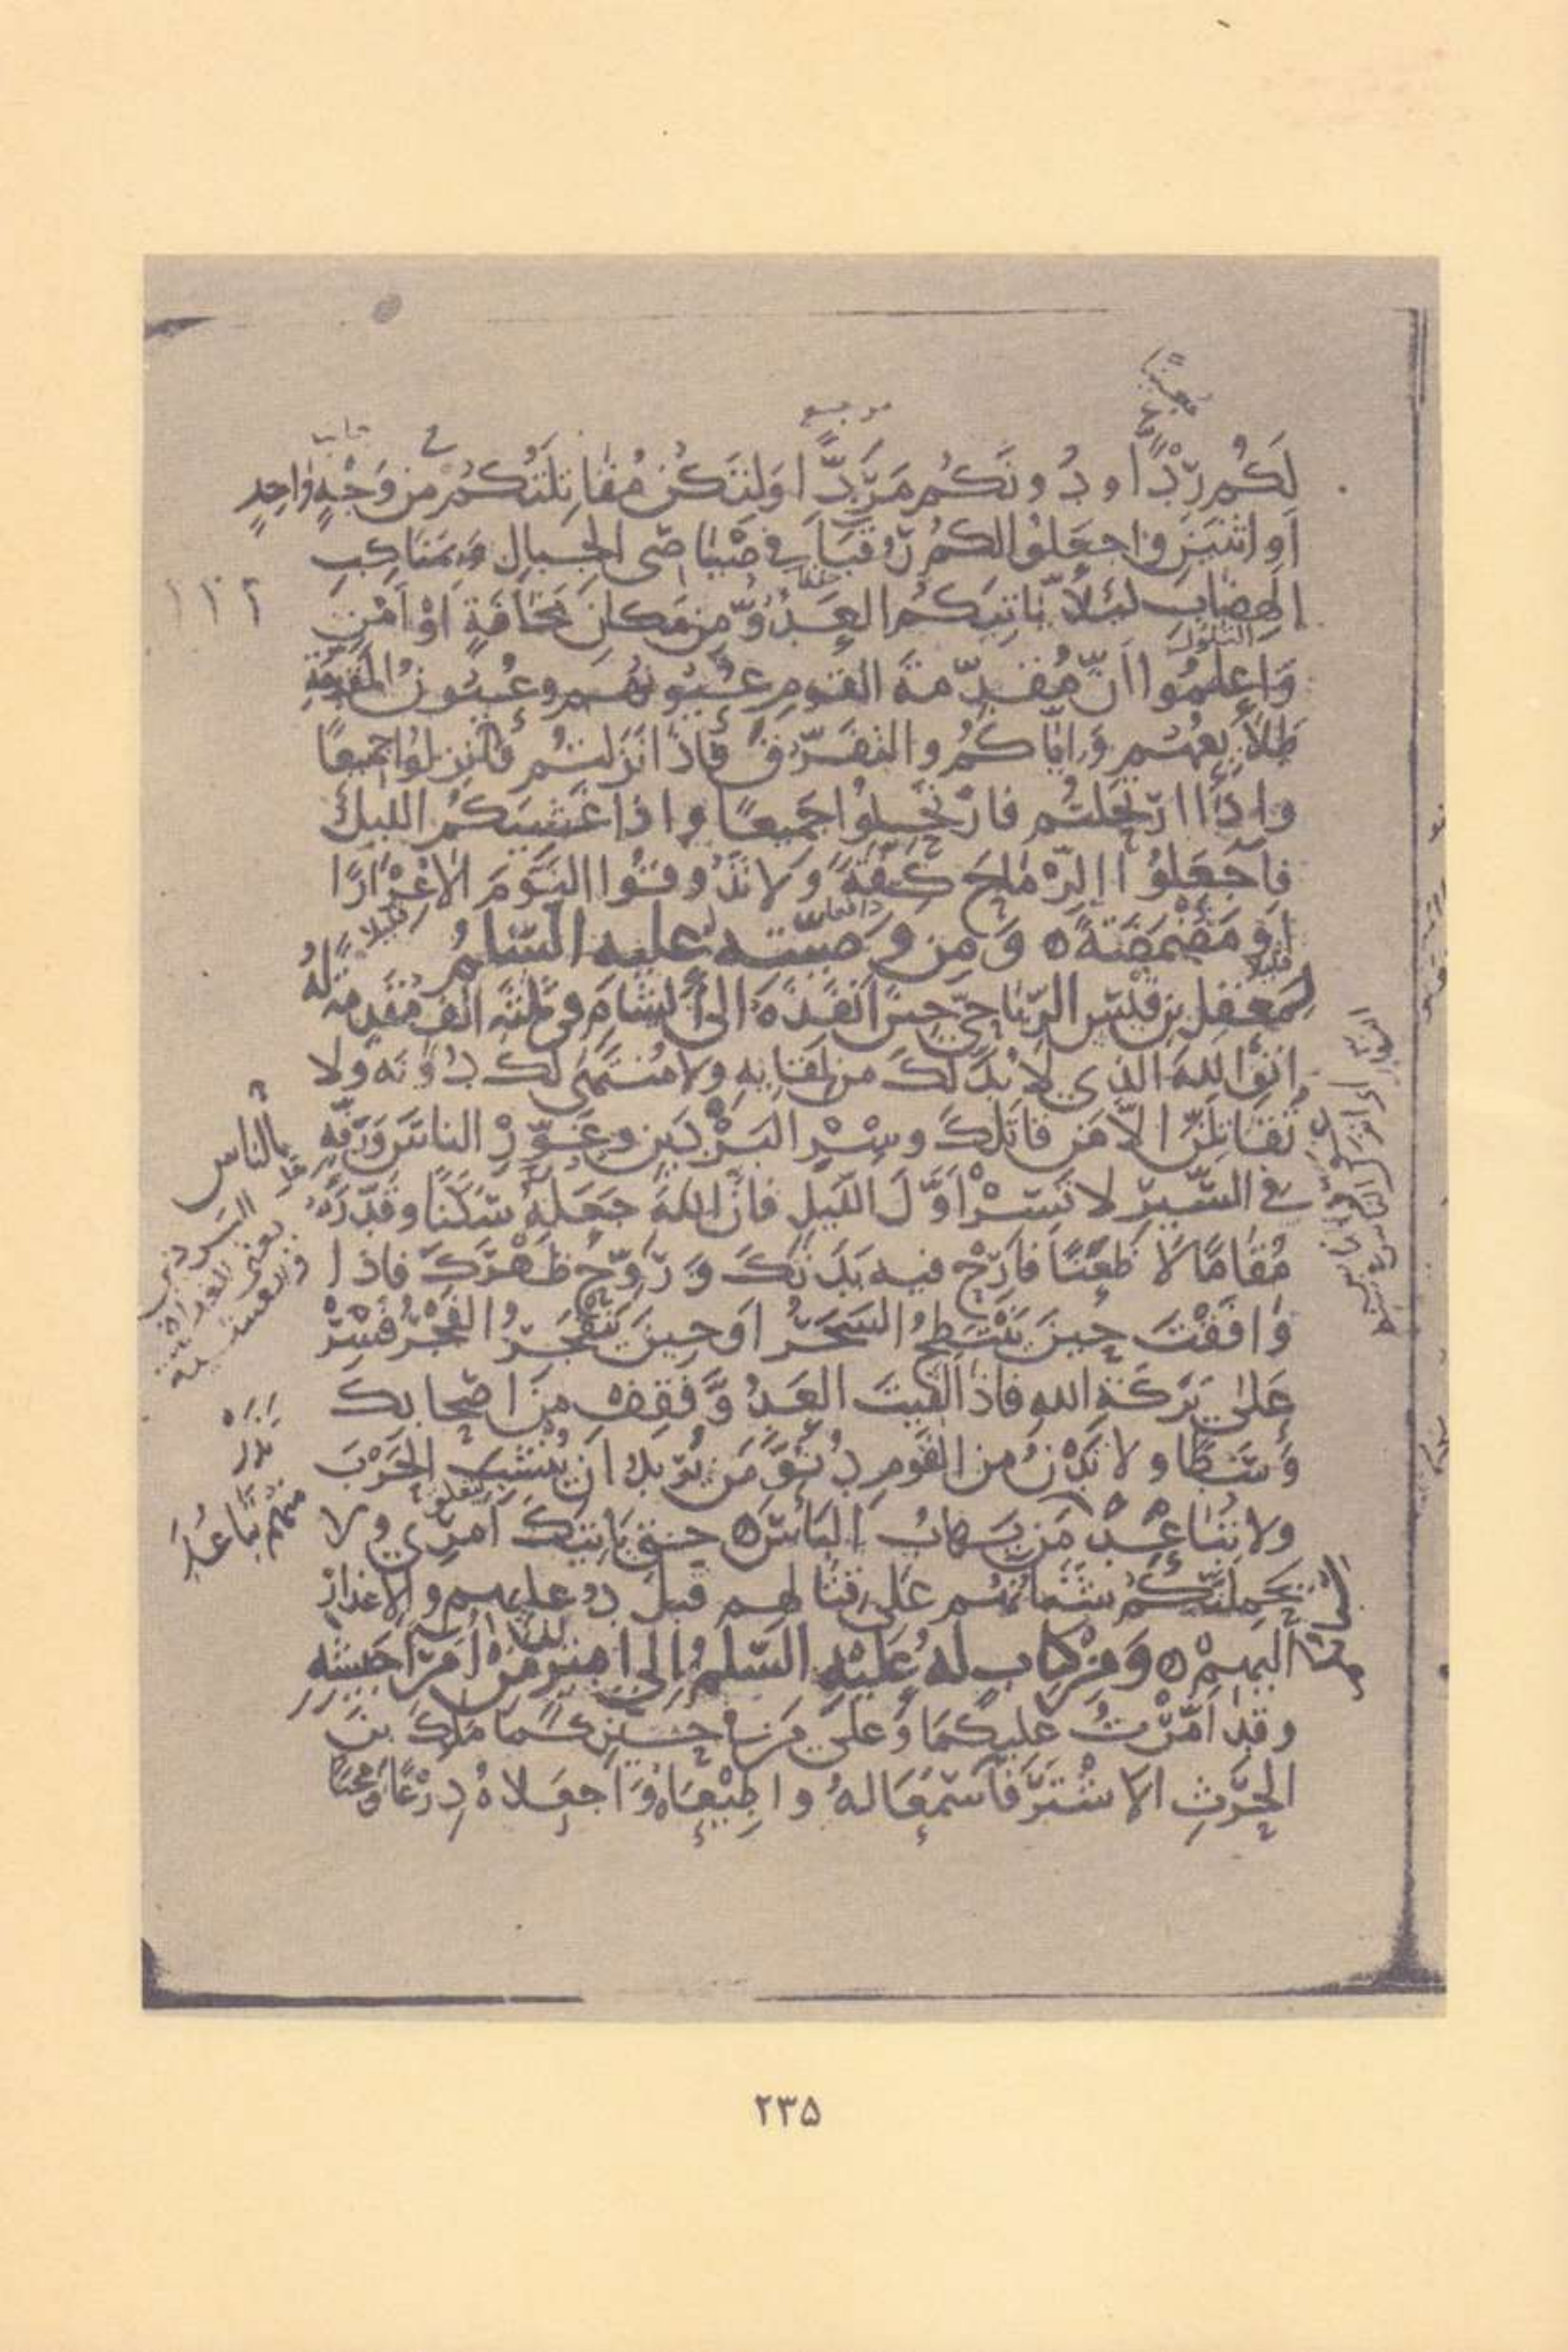 لَكُم رِدْءًا ودُونَكُم مَرَدًّا وَلتَكُن مُقَاتِلَتُكُم مِن وَجْهٍ وَاحِدٍ
أَو اثنَينِ وَاجعَلُوا لكُم رُقَبَاءَ في صَيَاصِي الجِبالِ وَبمَنَاكِبِ
الهِضَابِ لئَلَّا يَاتِيَكُم العَدُوُّ مِن مَكانِ مَخَافَةٍ اوْ اَمْنٍ
وَاعلَمُوا اَنَّ مُقَدِّمَةَ القَومِ عُيُونُهُم وعُيُونُ المُقَدِّمَةِ
طَلَائِعُهُم وَايَّاكُم والتفَرُّقَ فَاذَا نَزَلتُم فَانزِلُوا جَمِيعًا
واذَا ارتَحَلتُم فَارْتَحِلُوا جَمِيعًا واذا غَشِيَكُمُ الليلُ
فاجعَلُوا الرِّمَاحَ كِفَّةً وَلا تَذُوقُوا النَّومَ الا غِرَارًا
اَو مَضْمَضَةً ۝ وَمِن وَصِيَّتِه عليه السَّلم
قليلا
لمَعقِلِ بنِ قَيسٍ الرِّيَاحِيِّ حِينَ اَنفَذَهُ الى الشَامِ في ثلثَةِ الفٍ مُقَدِّمَةً لَهُ
اتَّقِ اللهَ الذي لا بُدَّ لَكَ من لِقَايِهِ ولا مُنتَهَى لَكَ دُونَه ولا
تُقَاتِلَنَّ الَّا مَن قاتَلكَ وسِرِ البَرْدَينِ وغَوِّرْ بالناس وَرَفِّه
في السَّيرِ لا تَسِرْ اَوَّلَ اللَّيلِ فانَّ اللهَ جَعَلهُ سَكَنًا وقَدَّرَهُ
مُقَامًا لَا ظَعْنًا فاَرِحْ فيه بَدَنَكَ وَرَوِّحْ ظَهْرَكَ فاذا
وَاقَفْتَ حِينَ يَنْبَطِحُ السَحَرُ اَو حِينَ يَنفَجِرُ الفَجْرُ فَسِرْ
عَلَى بَرَكَةِ اللهِ فاذا لَقِيتَ العَدُوَّ فَقِفْ مِن اَصحَابِكَ
وَسَطًا ولا تَدْنُ من القَومِ دُنُوَّ مَن يُرِيدُ ان يُنْشِبَ الحَرْبَ
ولا تَبَاعَدْ مَن يَهَابُ البَأسَ حتى يَاتِيَكَ اَمرِي ولا
يَحمِلَنَّكُم شَنَآنُهُم عَلَى قتَالِهِم قَبلَ دُعَايِهم والاِعذَارِ
اليهِمْ ۝ وَمِن كِتابٍ لهُ عَلَيهِ السَّلمُ الى اَمِيرَينِ مِن اُمَرَاءِ جَيشِهِ
وقد اَمَّرْتُ عَليكُمَا وَعلَى مَن في حَيِّزِكُمَا مَالِكَ بنَ
الحٰرِثِ الاَشْتَرَ فاسْمَعَا لهُ واَطِيعَاهُ وَاجعَلاهُ دِرْعًا وَمِجَنًّا
بالناس
۲۳۵